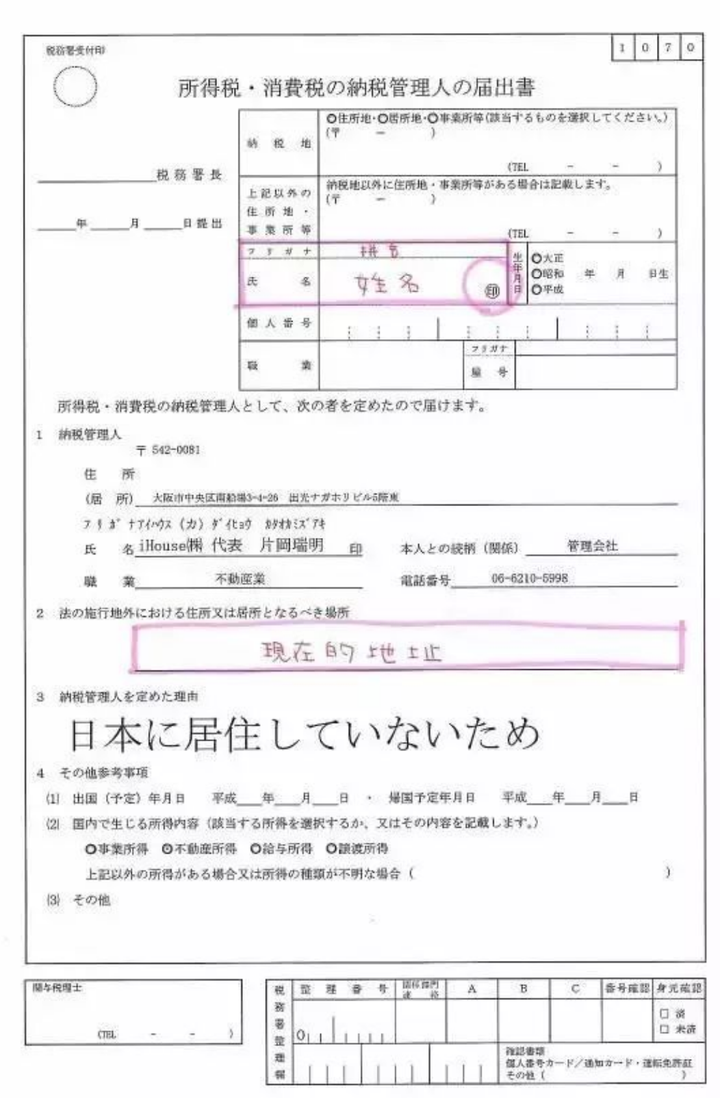 税務署受付印
1 0 7 0
所得税・消費税の納税管理人の届出書
税務署長
年 月 日提出
納税地
○住所地・○居所地・○事業所等(該当するものを選択してください。)
(〒 － )
(TEL － － )
上記以外の住所地・事業所等
納税地以外に住所地・事業所等がある場合は記載します。
(〒 － )
(TEL － － )
フリガナ
拼音
氏名
姓名
㊞
生年月日
○大正
○昭和 年 月 日生
○平成
個人番号
職業
フリガナ
屋号
所得税・消費税の納税管理人として、次の者を定めたので届けます。
1 納税管理人
〒 542-0081
住所
(居所) 大阪市中央区南船場3-4-26 出光ナガホリビル5階東
フリガナ アイハウス (カ) ダイヒョウ カタオカミズアキ
氏名 iHouse㈱ 代表 片岡瑞明 印 本人との続柄（関係） 管理会社
職業 不動産業 電話番号 06-6210-5998
2 法の施行地外における住所又は居所となるべき場所
現在的地址
3 納税管理人を定めた理由
日本に居住していないため
4 その他参考事項
(1) 出国（予定）年月日 平成 年 月 日 ・ 帰国予定年月日 平成 年 月 日
(2) 国内で生じる所得内容（該当する所得を選択するか、又はその内容を記載します。）
○事業所得 ⊙不動産所得 ○給与所得 ○譲渡所得
上記以外の所得がある場合又は所得の種類が不明な場合（ ）
(3) その他
関与税理士
(TEL － － )
税務署整理欄
整理番号
関係部門連絡
A
B
C
番号確認
身元確認
0
□ 済
□ 未済
確認書類
個人番号カード／通知カード・運転免許証
その他（ ）